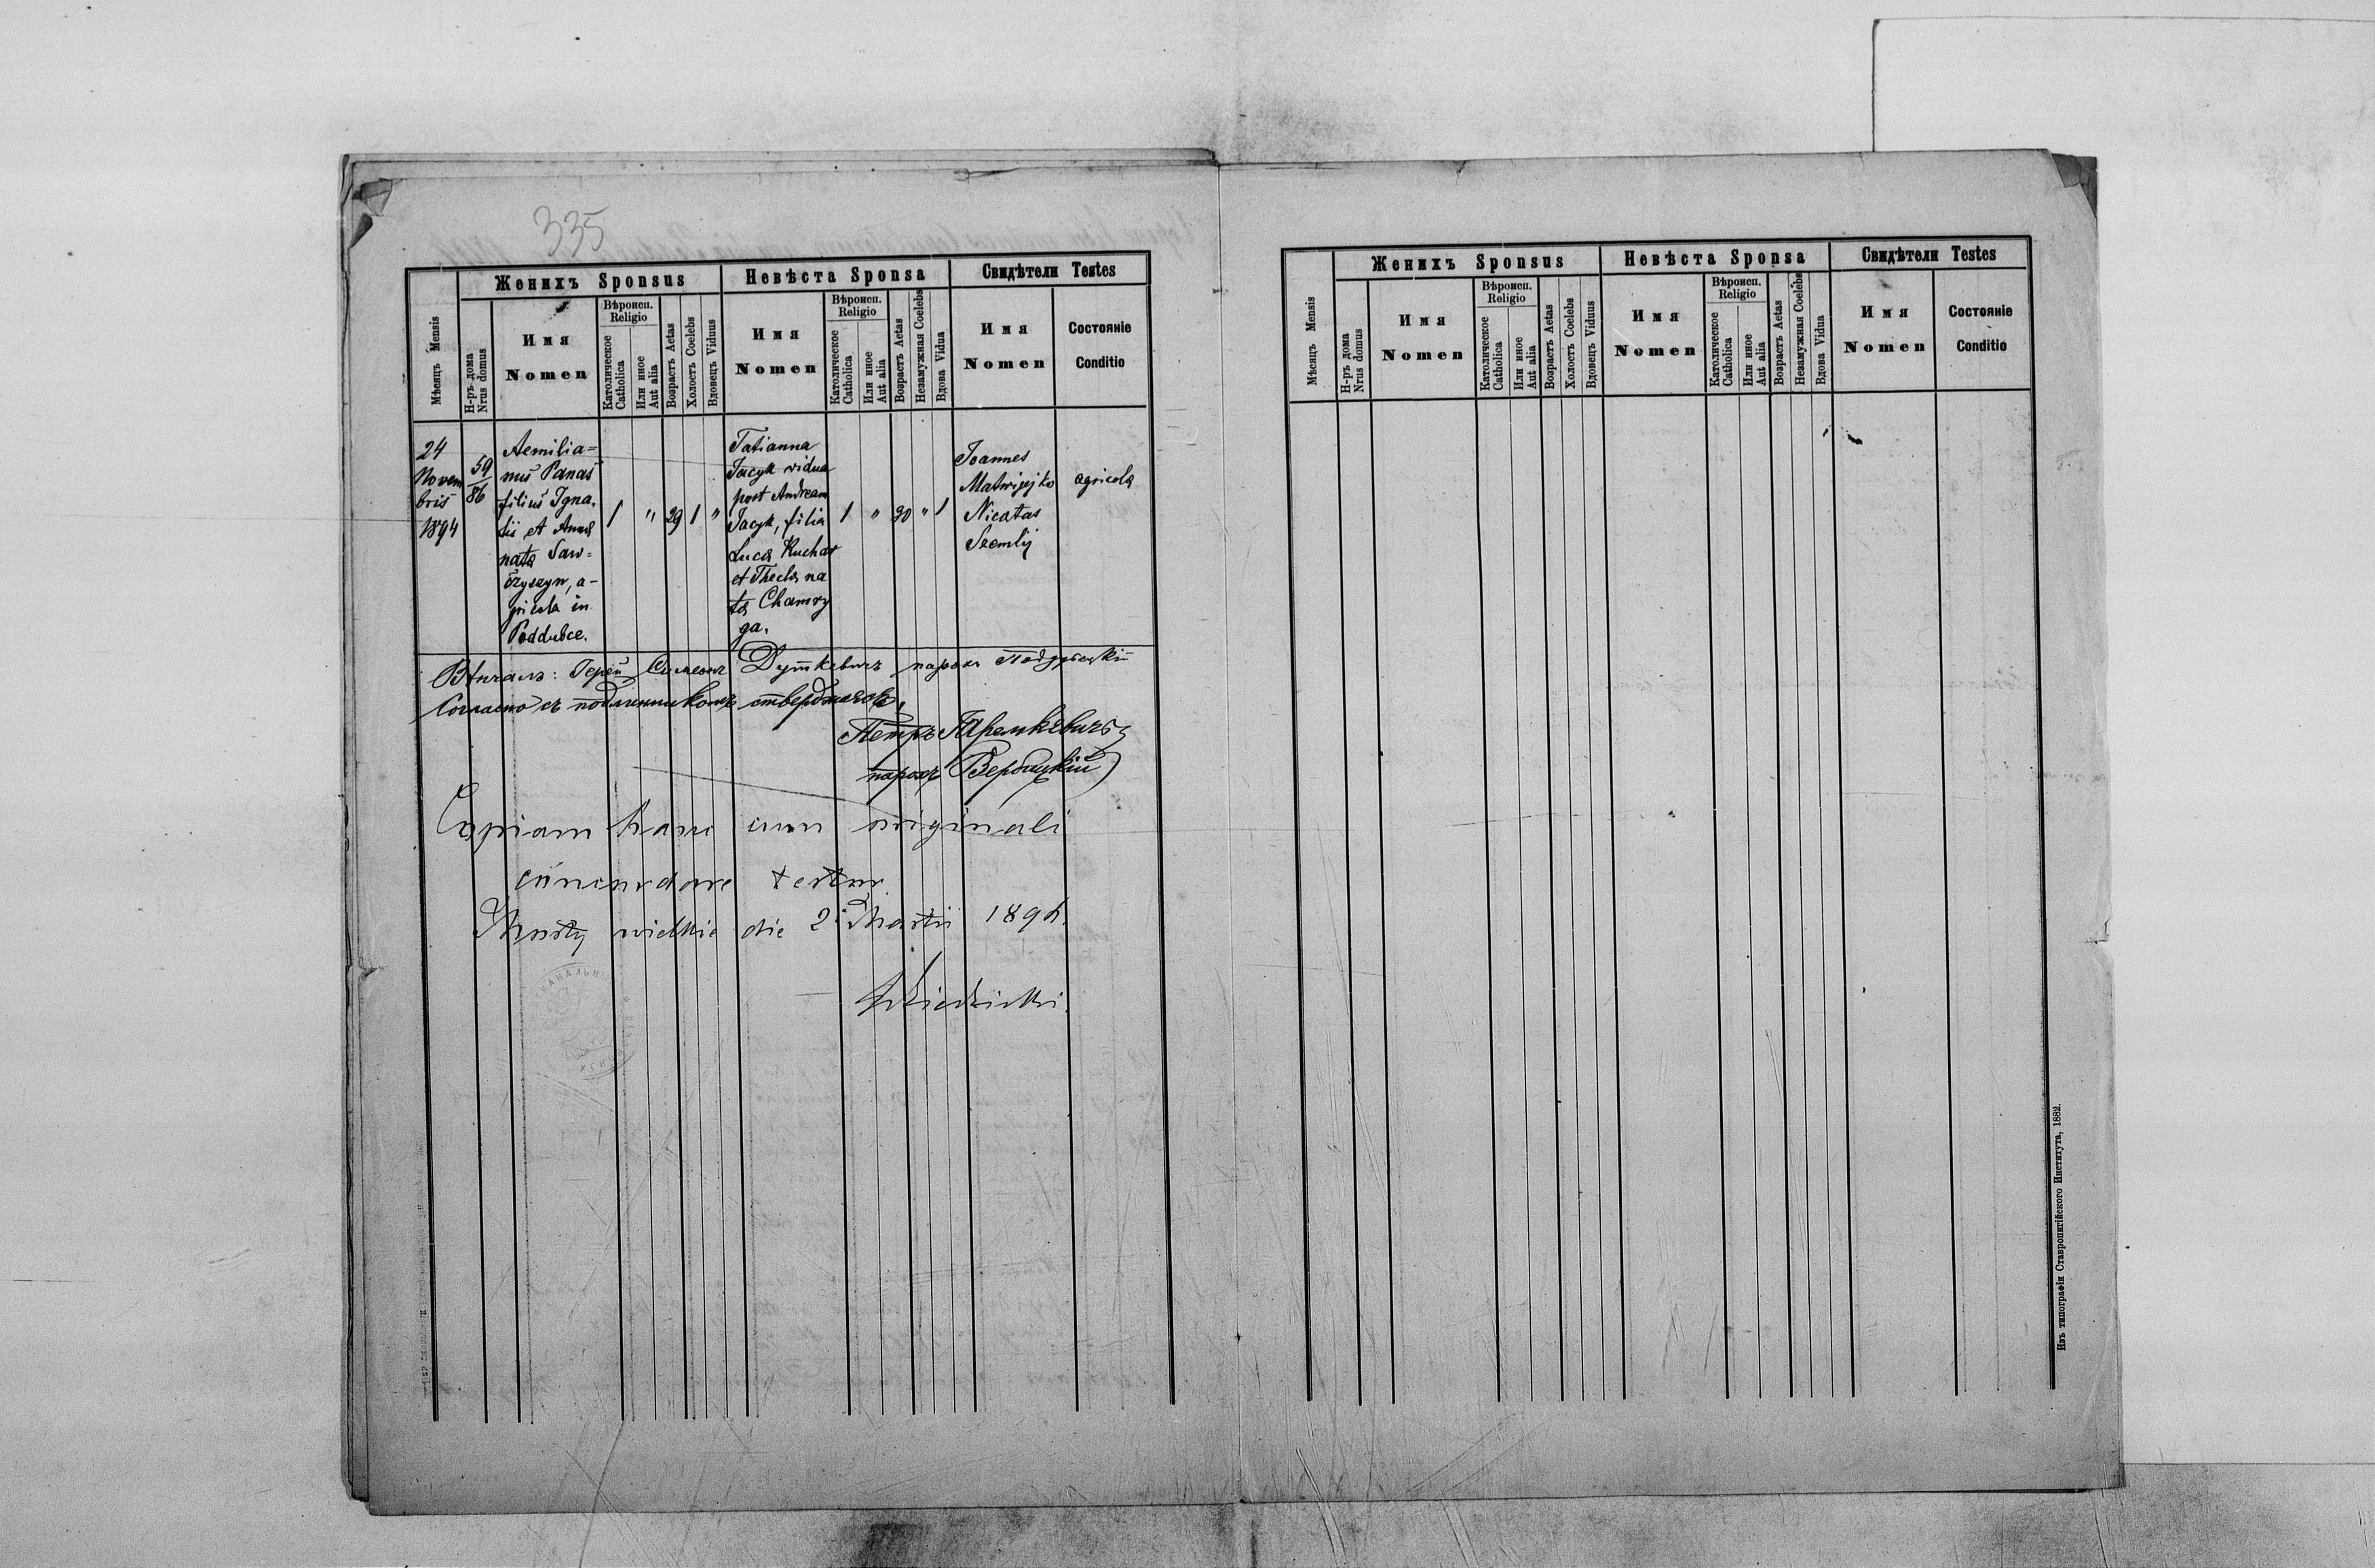 335
Женихъ Sponsus
Невѣста Sponsa
Свидѣтели Testes
Мѣсяцъ Mensis
Н-ръ дома
Nrus domus
Имя
Nomen
Вѣроисп.
Religio
Католическое
Catholica
Или иное
Aut alia
Возрастъ Aetas
Холостъ Coelebs
Вдовецъ Viduus
Имя
Nomen
Вѣроисп.
Religio
Католическое
Catholica
Или иное
Aut alia
Возрастъ Aetas
Незамужная Coelebs
Вдова Vidua
Имя
Nomen
Состояніе
Conditio
24
Novem
bris
1894
59
86
Aemilia=
nus Panas
filius Igna,
tii et Anna
nata Saw=
czyszyn, a-
gricola in
Poddubce.
1
"
29
1
"
Tatianna
Jacyk vidua
post Andream
Jacyk, filia
Luca Kuchar
et Thecla na
ta Chamry
ga.
1
"
30
"
1
Joannes
Matwijejko
Nicetas
Szemlij
agricola
Вѣнчалъ: Герей Симеонъ Дуткевичъ парохъ Поддубецкій
Согласно съ подлинникомъ
Петръ
парохъ Вербицкій
Copiam hanc cum originali
concordare testor
Mosty wielkie die 2 Martii 189
Женихъ Sponsus
Невѣста Sponsa
Свидѣтели Testes
Мѣсяцъ Mensis
Н-ръ дома
Nrus domus
Имя
Nomen
Вѣроисп.
Religio
Католическое
Catholica
Или иное
Aut alia
Возрастъ Aetas
Холостъ Coelebs
Вдовецъ Viduus
Имя
Nomen
Вѣроисп.
Religio
Католическое
Catholica
Или иное
Aut alia
Возрастъ Aetas
Незамужная Coelebs
Вдова Vidua
Имя
Nomen
Состояніе
Conditio
Изъ типографіи Ставропигійского Института, 1882.